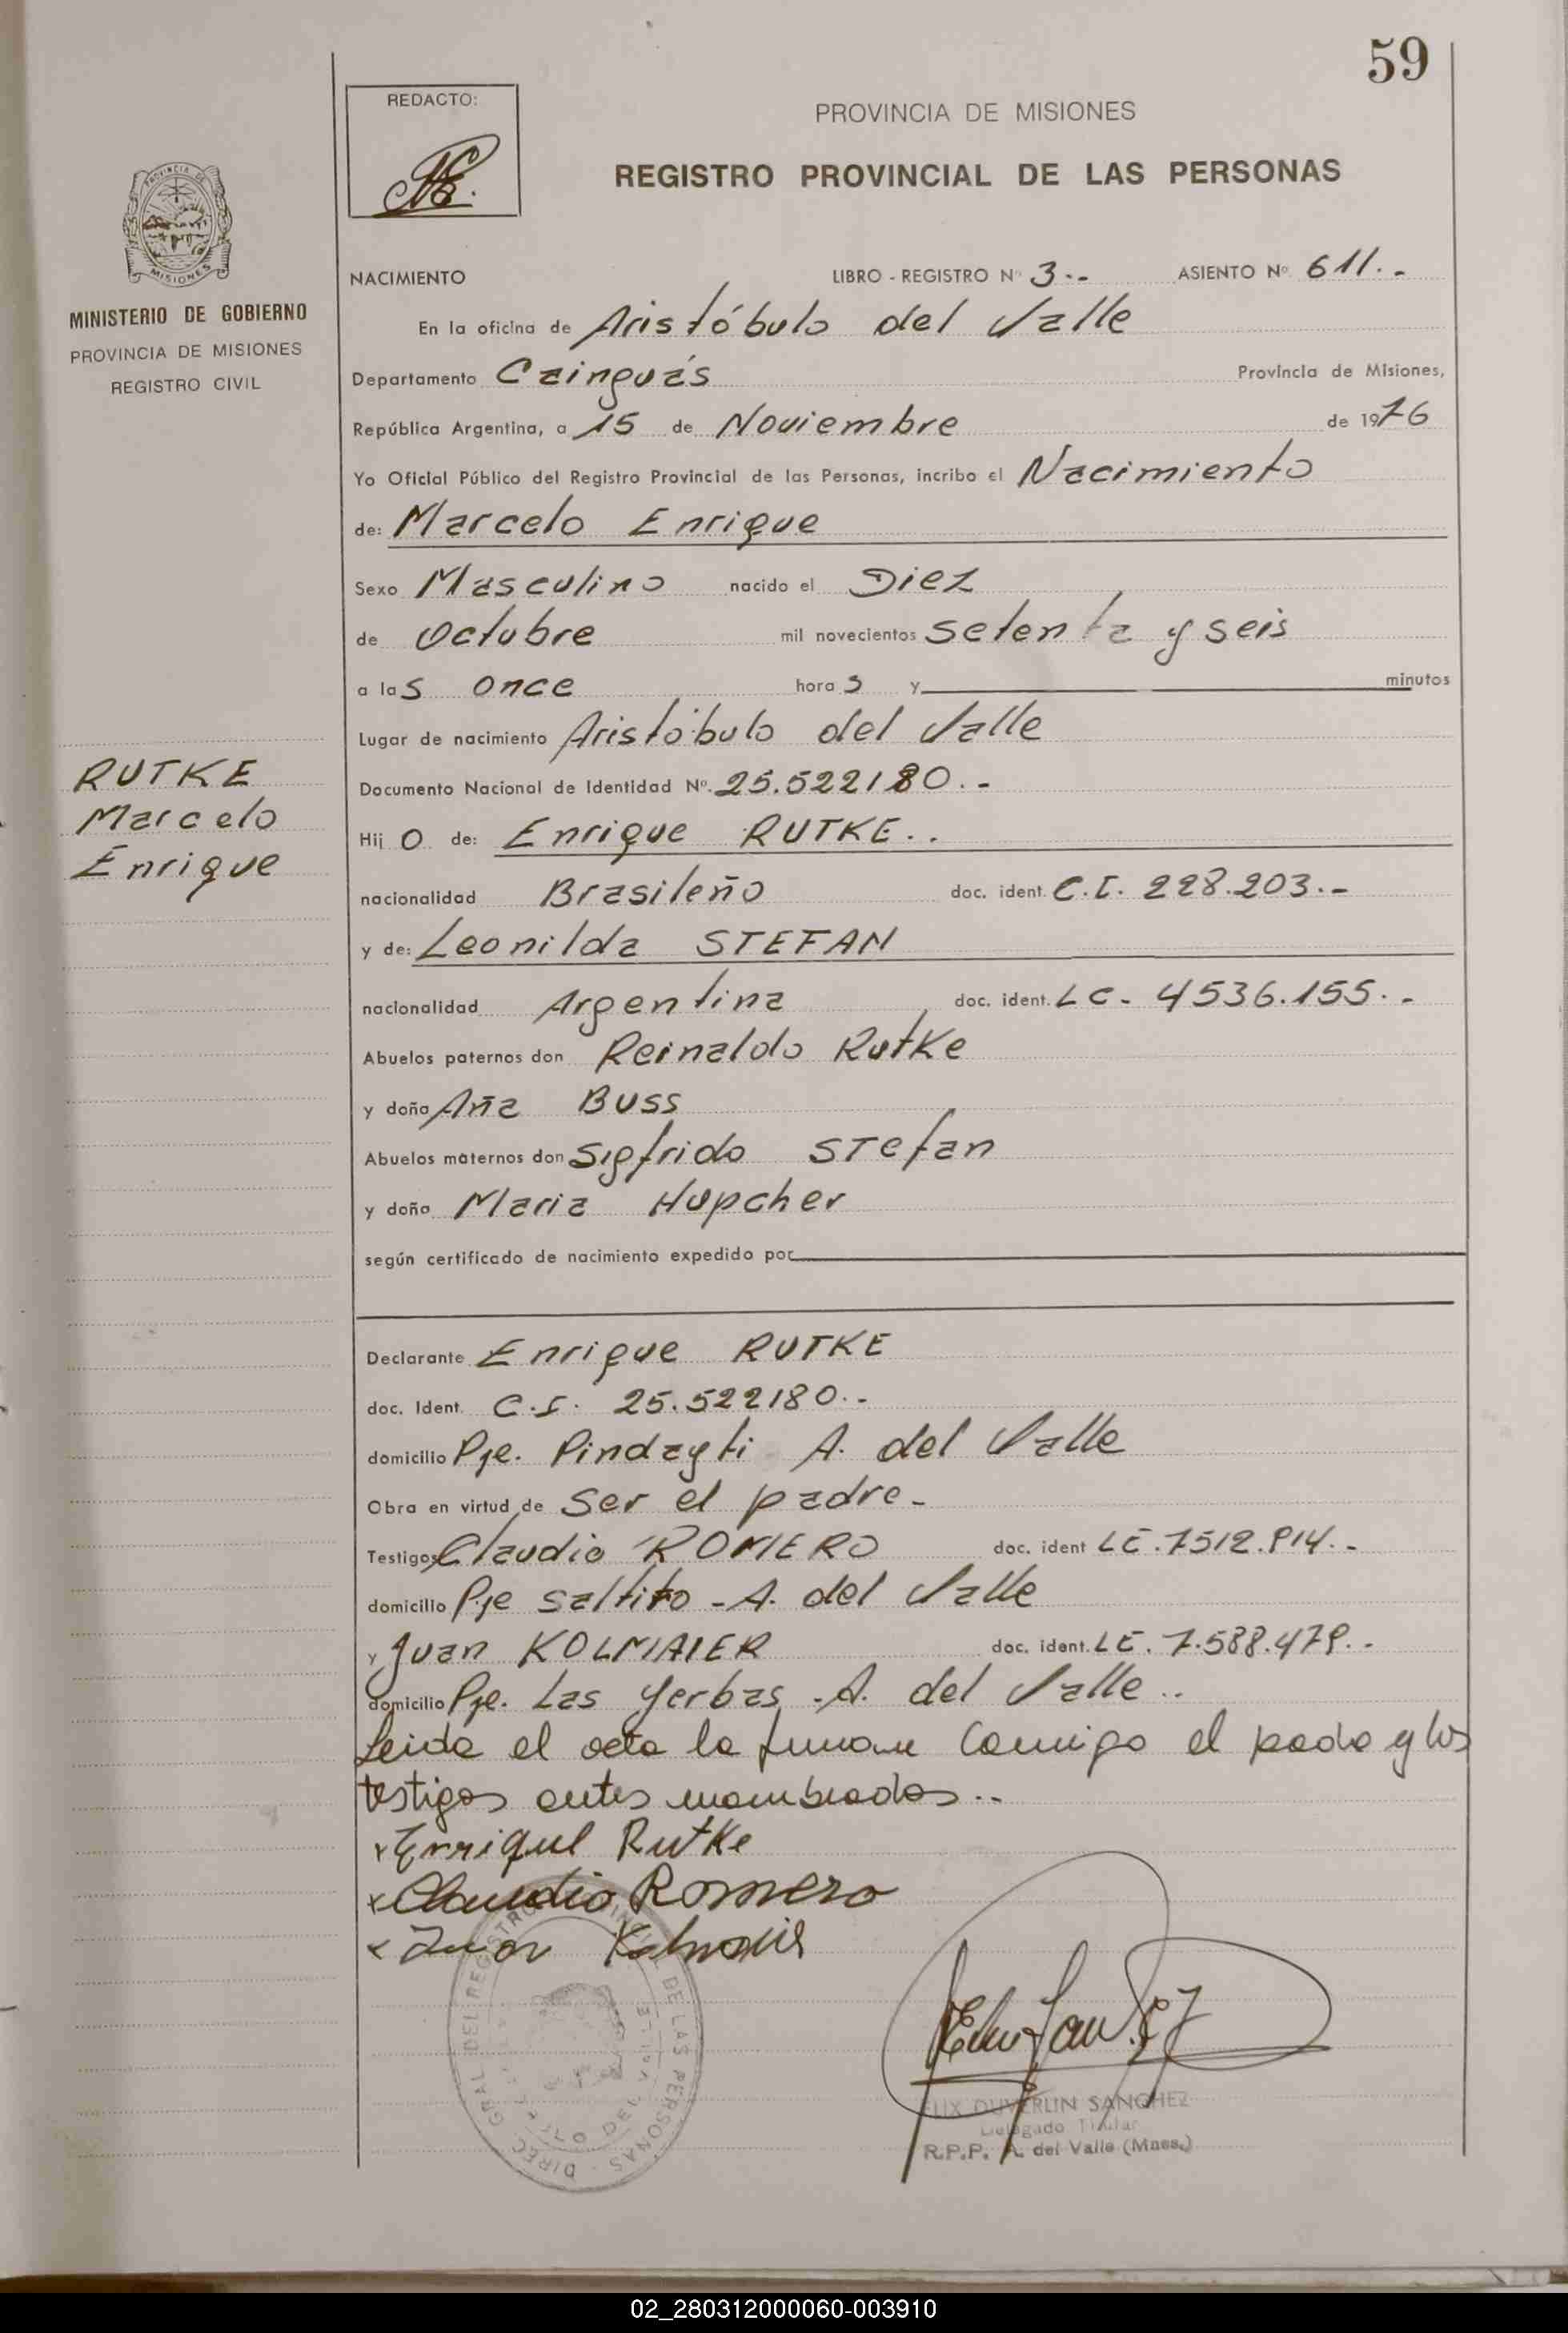 59
REDACTO:
PROVINCIA DE MISIONES
REGISTRO PROVINCIAL DE LAS PERSONAS
PROVINCIA DE
MISIONES
MINISTERIO DE GOBIERNO
PROVINCIA DE MISIONES
REGISTRO CIVIL
NACIMIENTO LIBRO - REGISTRO Nº 3.-- ASIENTO Nº 611.-
En la oficina de Aristóbulo del Valle
Departamento Cainguás Provincia de Misiones,
República Argentina, a 15 de Noviembre de 1976
Yo Oficial Público del Registro Provincial de las Personas, incribo el Nacimiento
de: Marcelo Enrique
Sexo Masculino nacido el Diez
de Octubre mil novecientos setenta y seis
a las once horas y minutos
Lugar de nacimiento Aristóbulo del Valle
RUTKE
Marcelo
Enrique
Documento Nacional de Identidad Nº. 25.522180.-
Hijo de: Enrique RUTKE..
nacionalidad Brasileño doc. ident. C.I. 228.203.-
y de: Leonilda STEFAN
nacionalidad Argentina doc. ident. LC- 4536.155.-
Abuelos paternos don Reinaldo Rutke
y doña Aña BUSS
Abuelos maternos don Sigfrido STefan
y doña Maria Hupcher
según certificado de nacimiento expedido por
Declarante Enrique RUTKE
doc. Ident. C.I. 25.522180.-
domicilio Pje. Pindayti A. del Valle
Obra en virtud de Ser el padre-
Testigos Claudio ROMERO doc. ident LE.7512.914.-
domicilio Pje saltito - A. del Valle
y Juan KOLMAIER doc. ident. LE. 7.588.479.-
domicilio Pje. Las Yerbas - A. del Valle..
Leida el acta la firman Comigo el padre y los
testigos antes mombrados..
x Enrique Rutke
x Claudio Romero
x Juan
DIREC GRAL DEL REGISTRO DE LAS PERSONAS
FELIX DUVERLIN SANCHEZ
Delegado Titular
R.P.P. A. del Valle (Mnes.)
02_280312000060-003910